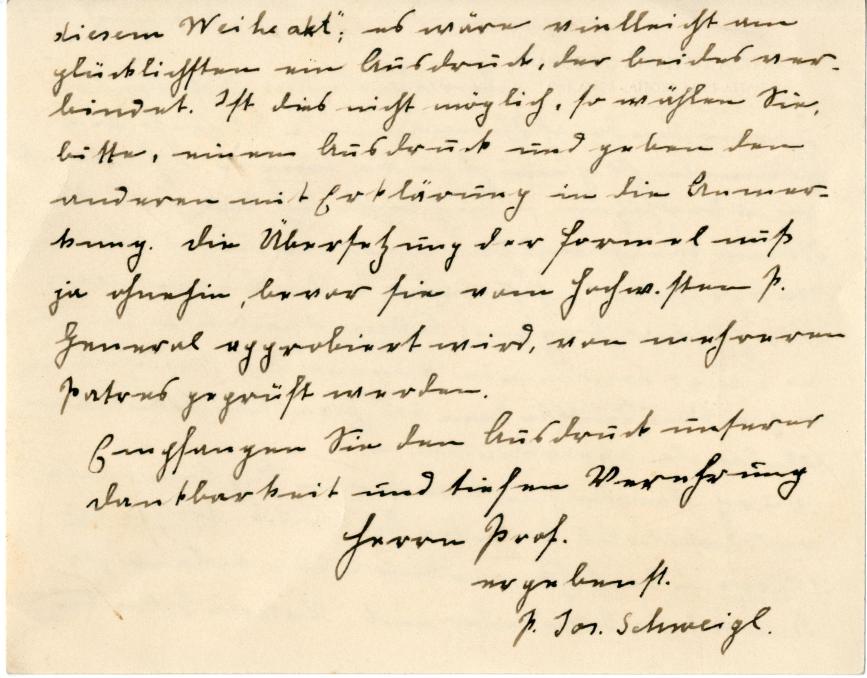 diesem Weiheakt"; es wäre vielleicht am
glücklichsten ein Ausdruck, der beides ver-
bindet. Ist dies nicht möglich, so wählen Sie,
bitte, einen Ausdruck und geben den
anderen mit Erklärung in die Anmer-
kung. Die Übersetzung der Formel muß
ja ohnehin, bevor sie vom Hochw.sten P.
General approbiert wird, von mehreren
Patres geprüft werden.
Empfangen Sie den Ausdruck unserer
Dankbarkeit und tiefen Verehrung
Herrn Prof.
ergebenst.
P. Jos. Schweigl.